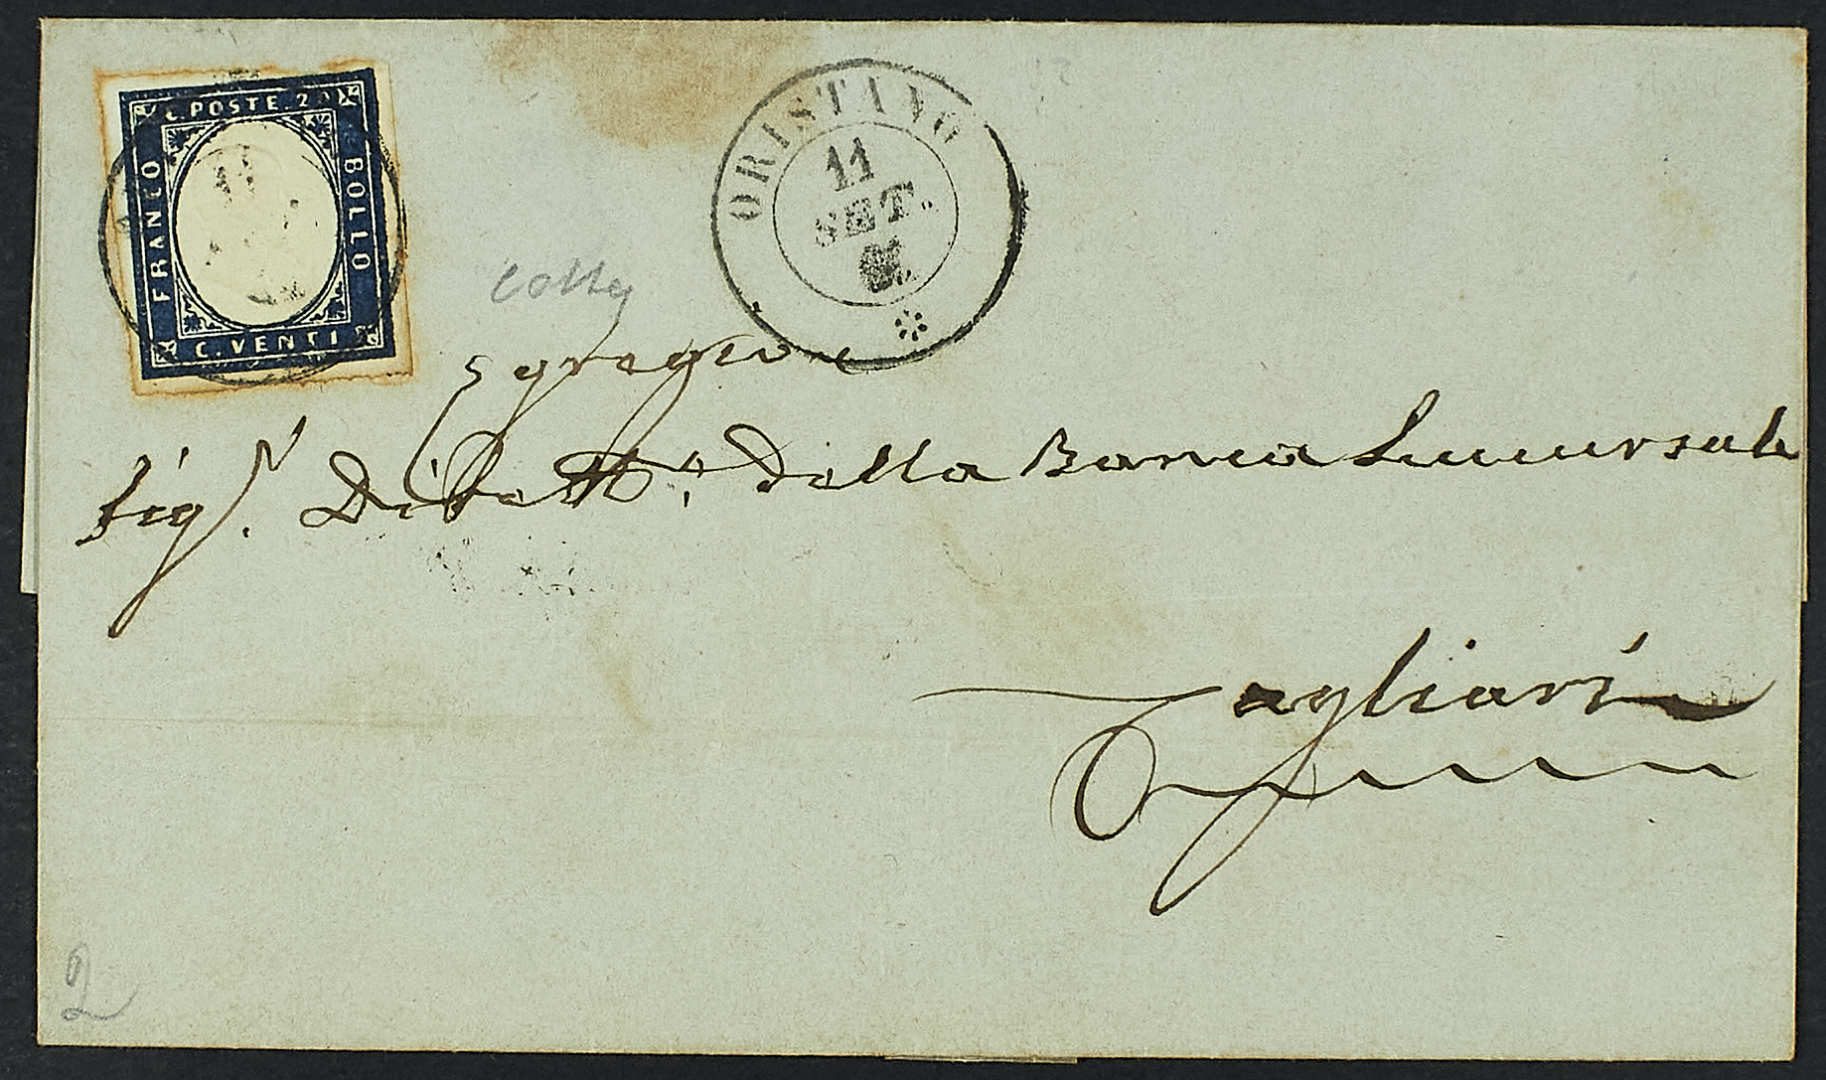 C. POSTE. 20
FRANCO
BOLLO
C. VENTI
ORISTANO
11
SET.
Egregio
Sig.r Dirett.e della Banca Succursale
Cagliari
2